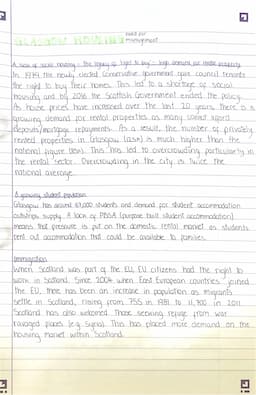 GLASGOW HOUSING need for
management
A lack of social housing - the legacy of 'right to buy' - high demand for rental property
In 1979 the newly elected Conservative government gave council tenants
the right to buy their homes. This led to a shortage of social
housing and by 2016 the Scottish Government ended the policy.
As house prices have increased over the last 20 years, there is a
growing demand for rental properties as many cannot afford
deposits/mortgage repayments. As a result, the number of privately
rented properties in Glasgow (25%) is much higher than the
national figure (15%). This has led to overcrowding particularly in
the rental sector. Overcrowding in the city is twice the
national average.
A growing student population
Glasgow has around 67,000 students and demand for student accommodation
outstrips supply. A lack of PBSA (purpose built student accommodation)
means that pressure is put on the domestic rental market as students
rent out accommodation that could be available to families.
Immigration
When Scotland was part of the EU, EU citizens had the right to
work in Scotland. Since 2004 when East European countries joined
the EU, there has been an increase in population as migrants
settle in Scotland, rising from 755 in 1981 to 11,700 in 2011.
Scotland has also welcomed those seeking refuge from war
ravaged places (e.g. Syria). This has placed more demand on the
housing market within Scotland.